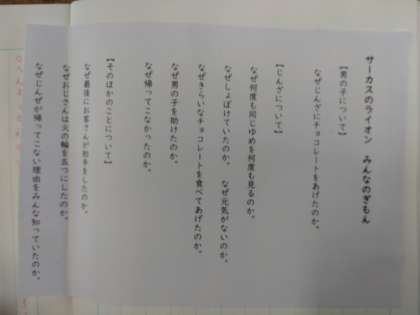 サーカスのライオン　みんなのぎもん
【男の子について】
なぜじんざにチョコレートをあげたのか。
【じんざについて】
なぜ何度も同じゆめを何度も見るのか。
なぜしょぼけていたのか。　なぜ元気がないのか。
なぜきらいなチョコレートを食べてあげたのか。
なぜ男の子を助けたのか。
なぜ帰ってこなかったのか。
【そのほかのことについて】
なぜ最後にお客さんが拍手をしたのか。
なぜおじさんは火の輪を五つにしたのか。
なぜじんざが帰ってこない理由をみんな知っていたのか。